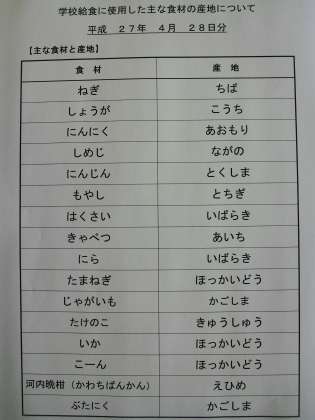 学校給食に使用した主な食材の産地について
平成　２７年　４月　２８日分
【主な食材と産地】
食　材　産　地
ねぎ　ちば
しょうが　こうち
にんにく　あおもり
しめじ　ながの
にんじん　とくしま
もやし　とちぎ
はくさい　いばらき
きゃべつ　あいち
にら　いばらき
たまねぎ　ほっかいどう
じゃがいも　かごしま
たけのこ　きゅうしゅう
いか　ほっかいどう
こーん　ほっかいどう
河内晩柑（かわちばんかん）　えひめ
ぶたにく　かごしま